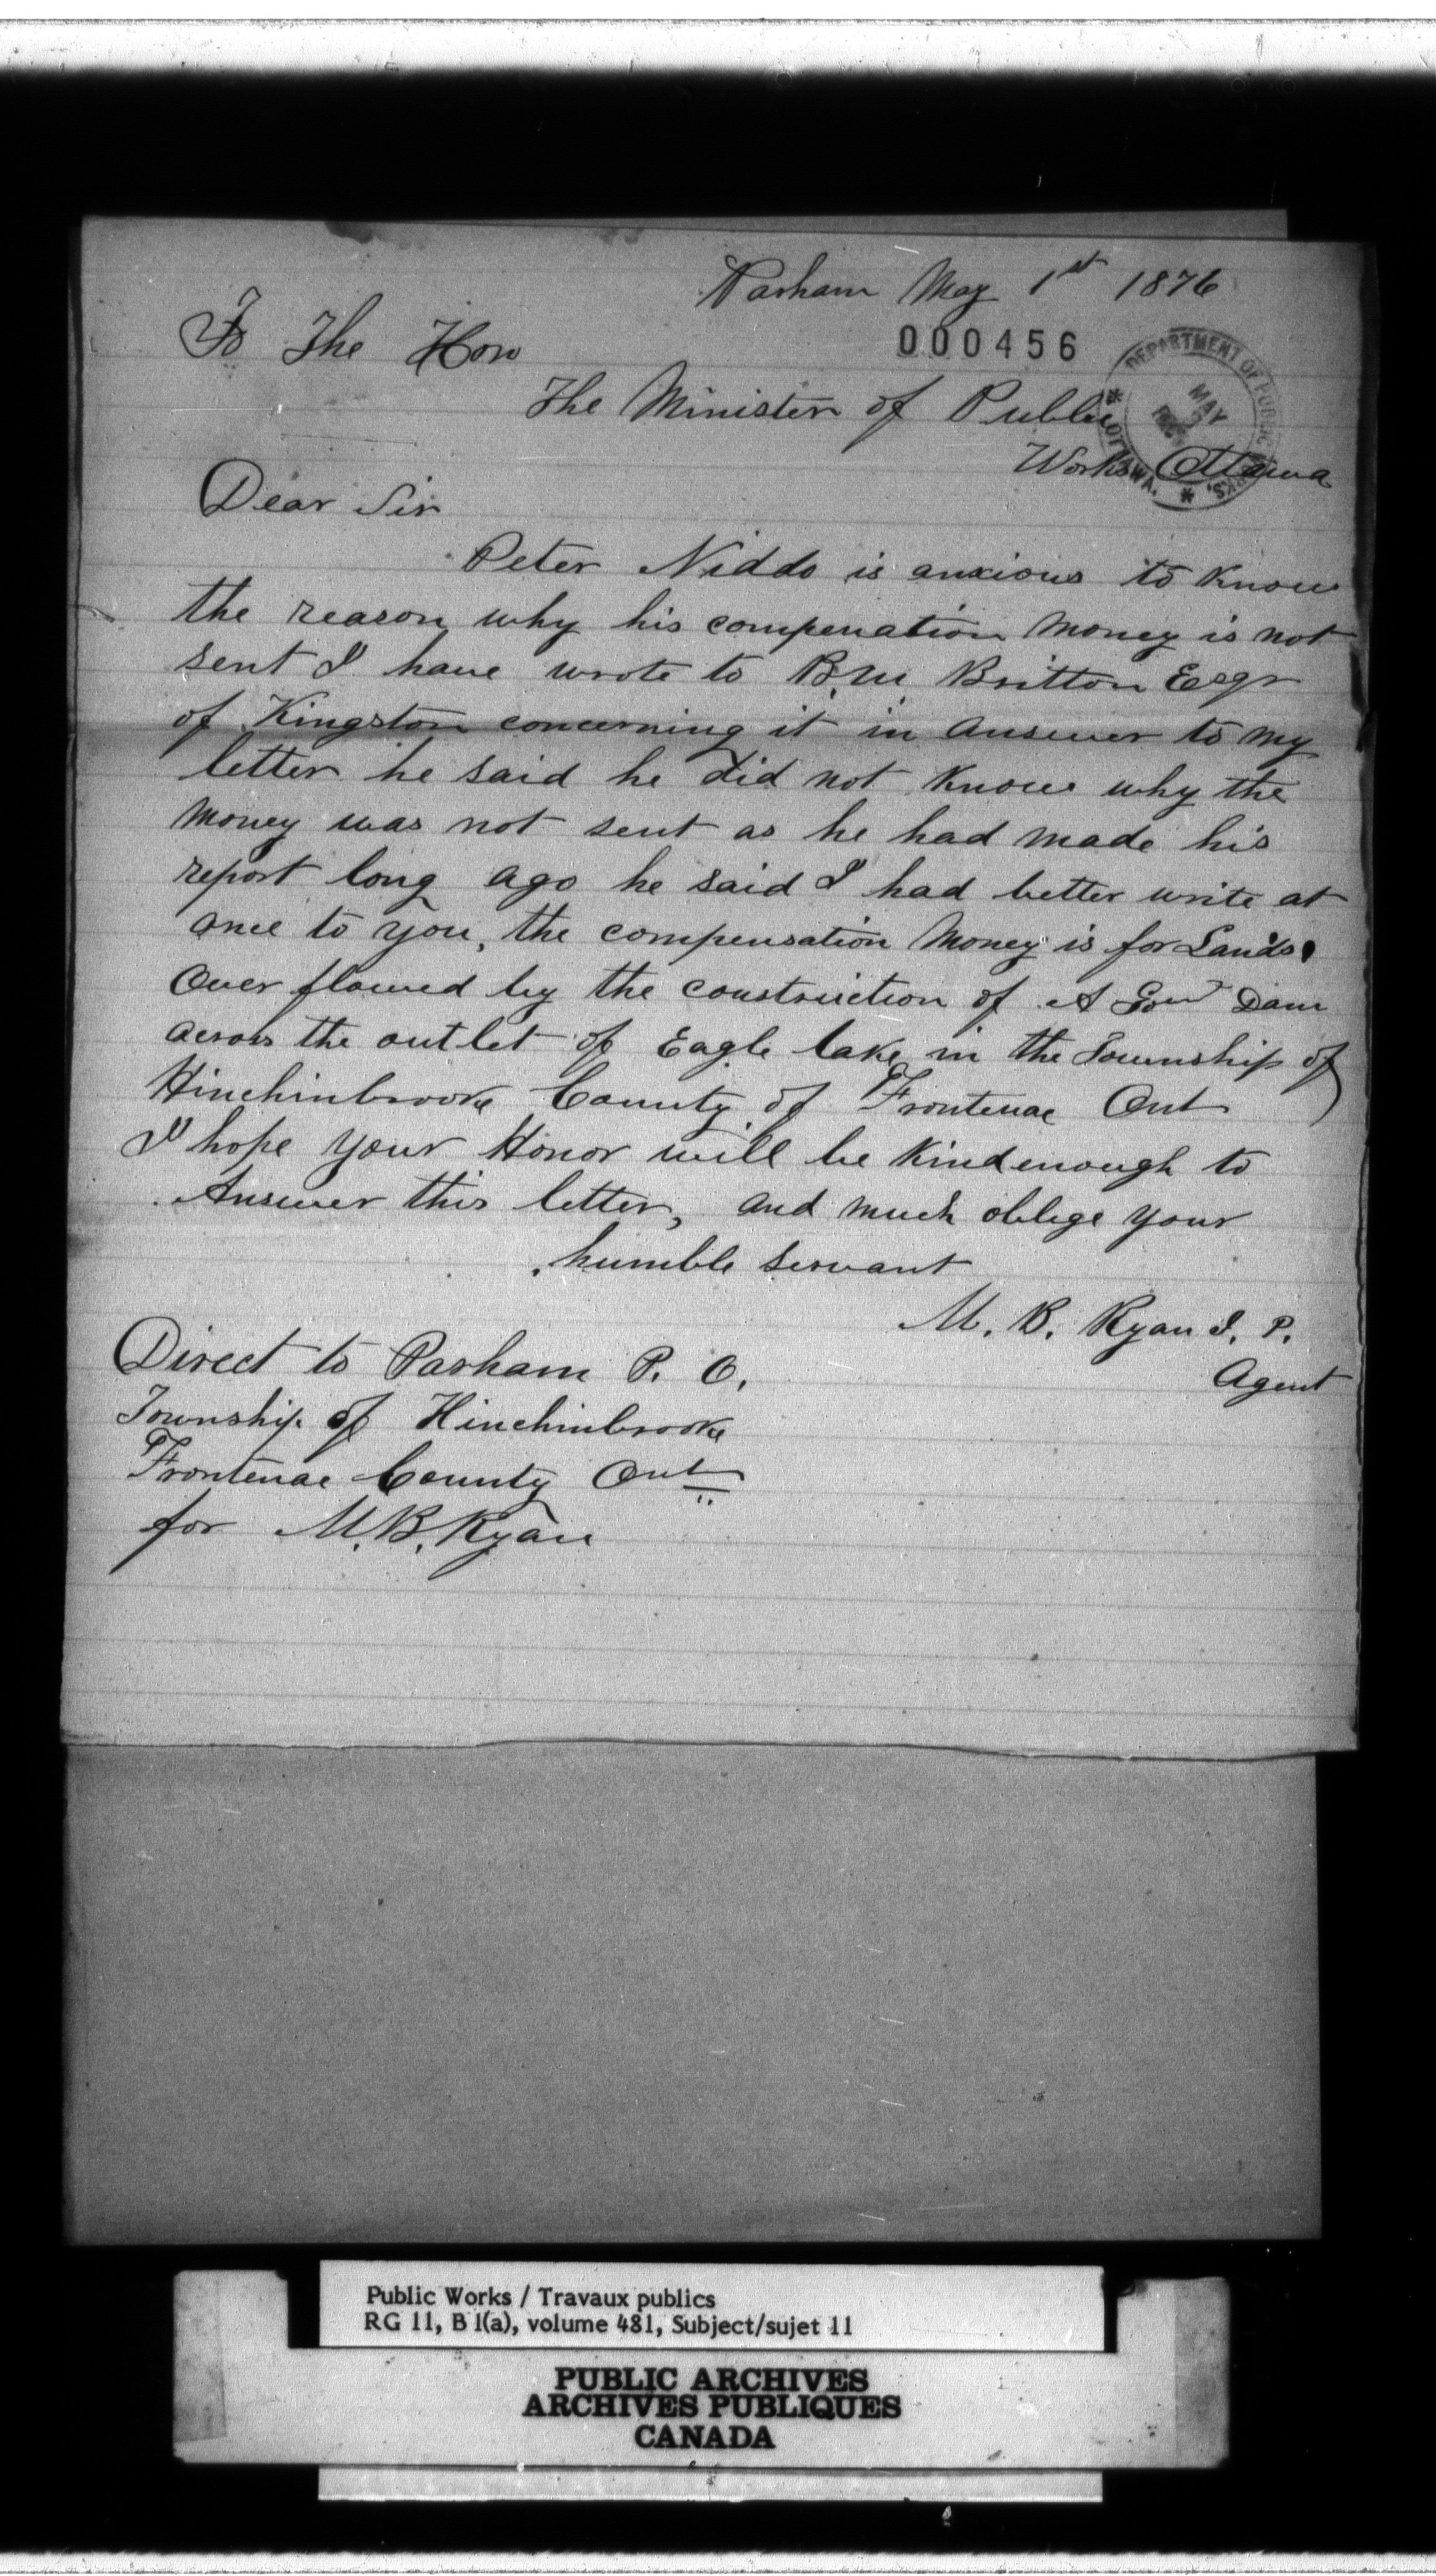 Parham May 1st 1876
To The Hon
000456
The Minister of Public
Works Ottawa
DEPARTMENT OF PUBLIC WORKS, * OTTAWA. *
MAY
Dear Sir
Peter Niddo is anxious to know
the reason why his compenation money is not
sent I have wrote to B.M. Britton Esqr
of Kingston concerning it in answer to my
letter he said he did not know why the
money was not sent as he had made his
report long ago he said I had better write at
once to you, the compensation money is for Lands
over flowed by the construction of A Gov Dam
across the outlet of Eagle lake in the Township of
Hinchinbrooke County of Frontenac Ont
I hope your Honor will be kind enough to
Answer this letter, and much oblige your
humble servant
M. B. Ryan J. P.
Agent
Direct to Parham P. O.
Township of Hinchinbrooke
Frontenac County Ont
for M. B. Ryan
Public Works / Travaux publics
RG 11, B 1(a), volume 481, Subject/sujet 11
PUBLIC ARCHIVES
ARCHIVES PUBLIQUES
CANADA